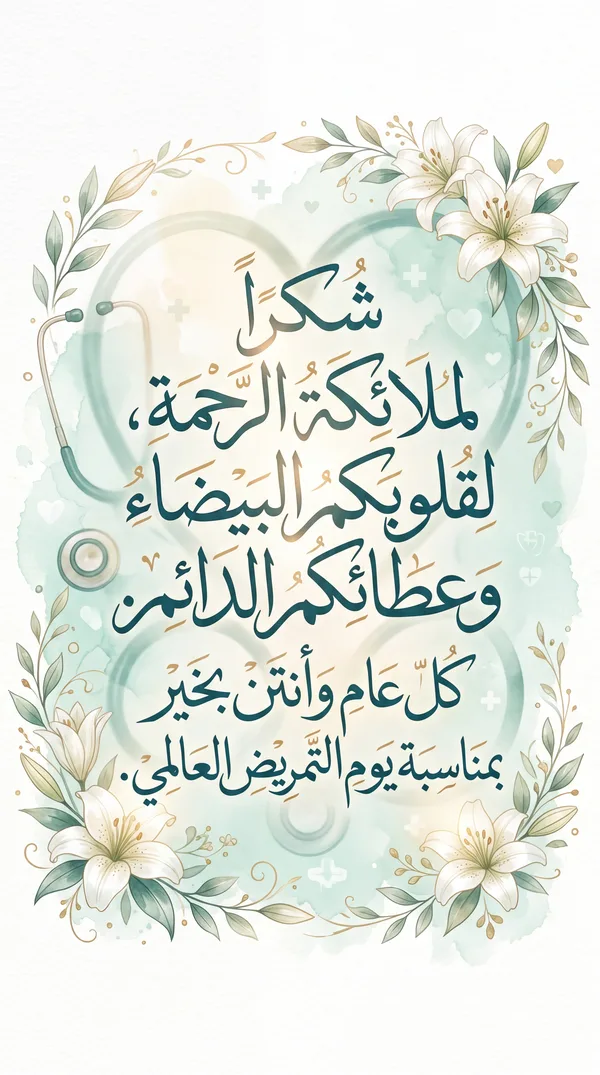 شُكرَاً
لمُلَائِكَةُ الرَّحْمَةِ،
لِقُلوبَكمُ البَيْضَاءُ
وَعَطَائِكُمُ الدَائِمْ.
كُلّ عَامِ وَأَنتَنْ بخَيْر
بمَنَاسِبَة يَومِ التَّمرِيْضِ العَالمِيْ.